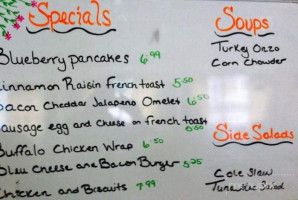 Specials
Blueberry pancakes 6.99
Cinnamon Raisin French toast 5.50
Bacon Cheddar Jalapeno Omelet 6.50
Sausage egg and cheese on french toast
Buffalo Chicken Wrap 6.50
Bleu cheese and Bacon Burger 5.25
Chicken and Biscuits 7.99
Soups
Turkey Orzo
Corn Chowder
Side Salads
Cole Slaw
Salad